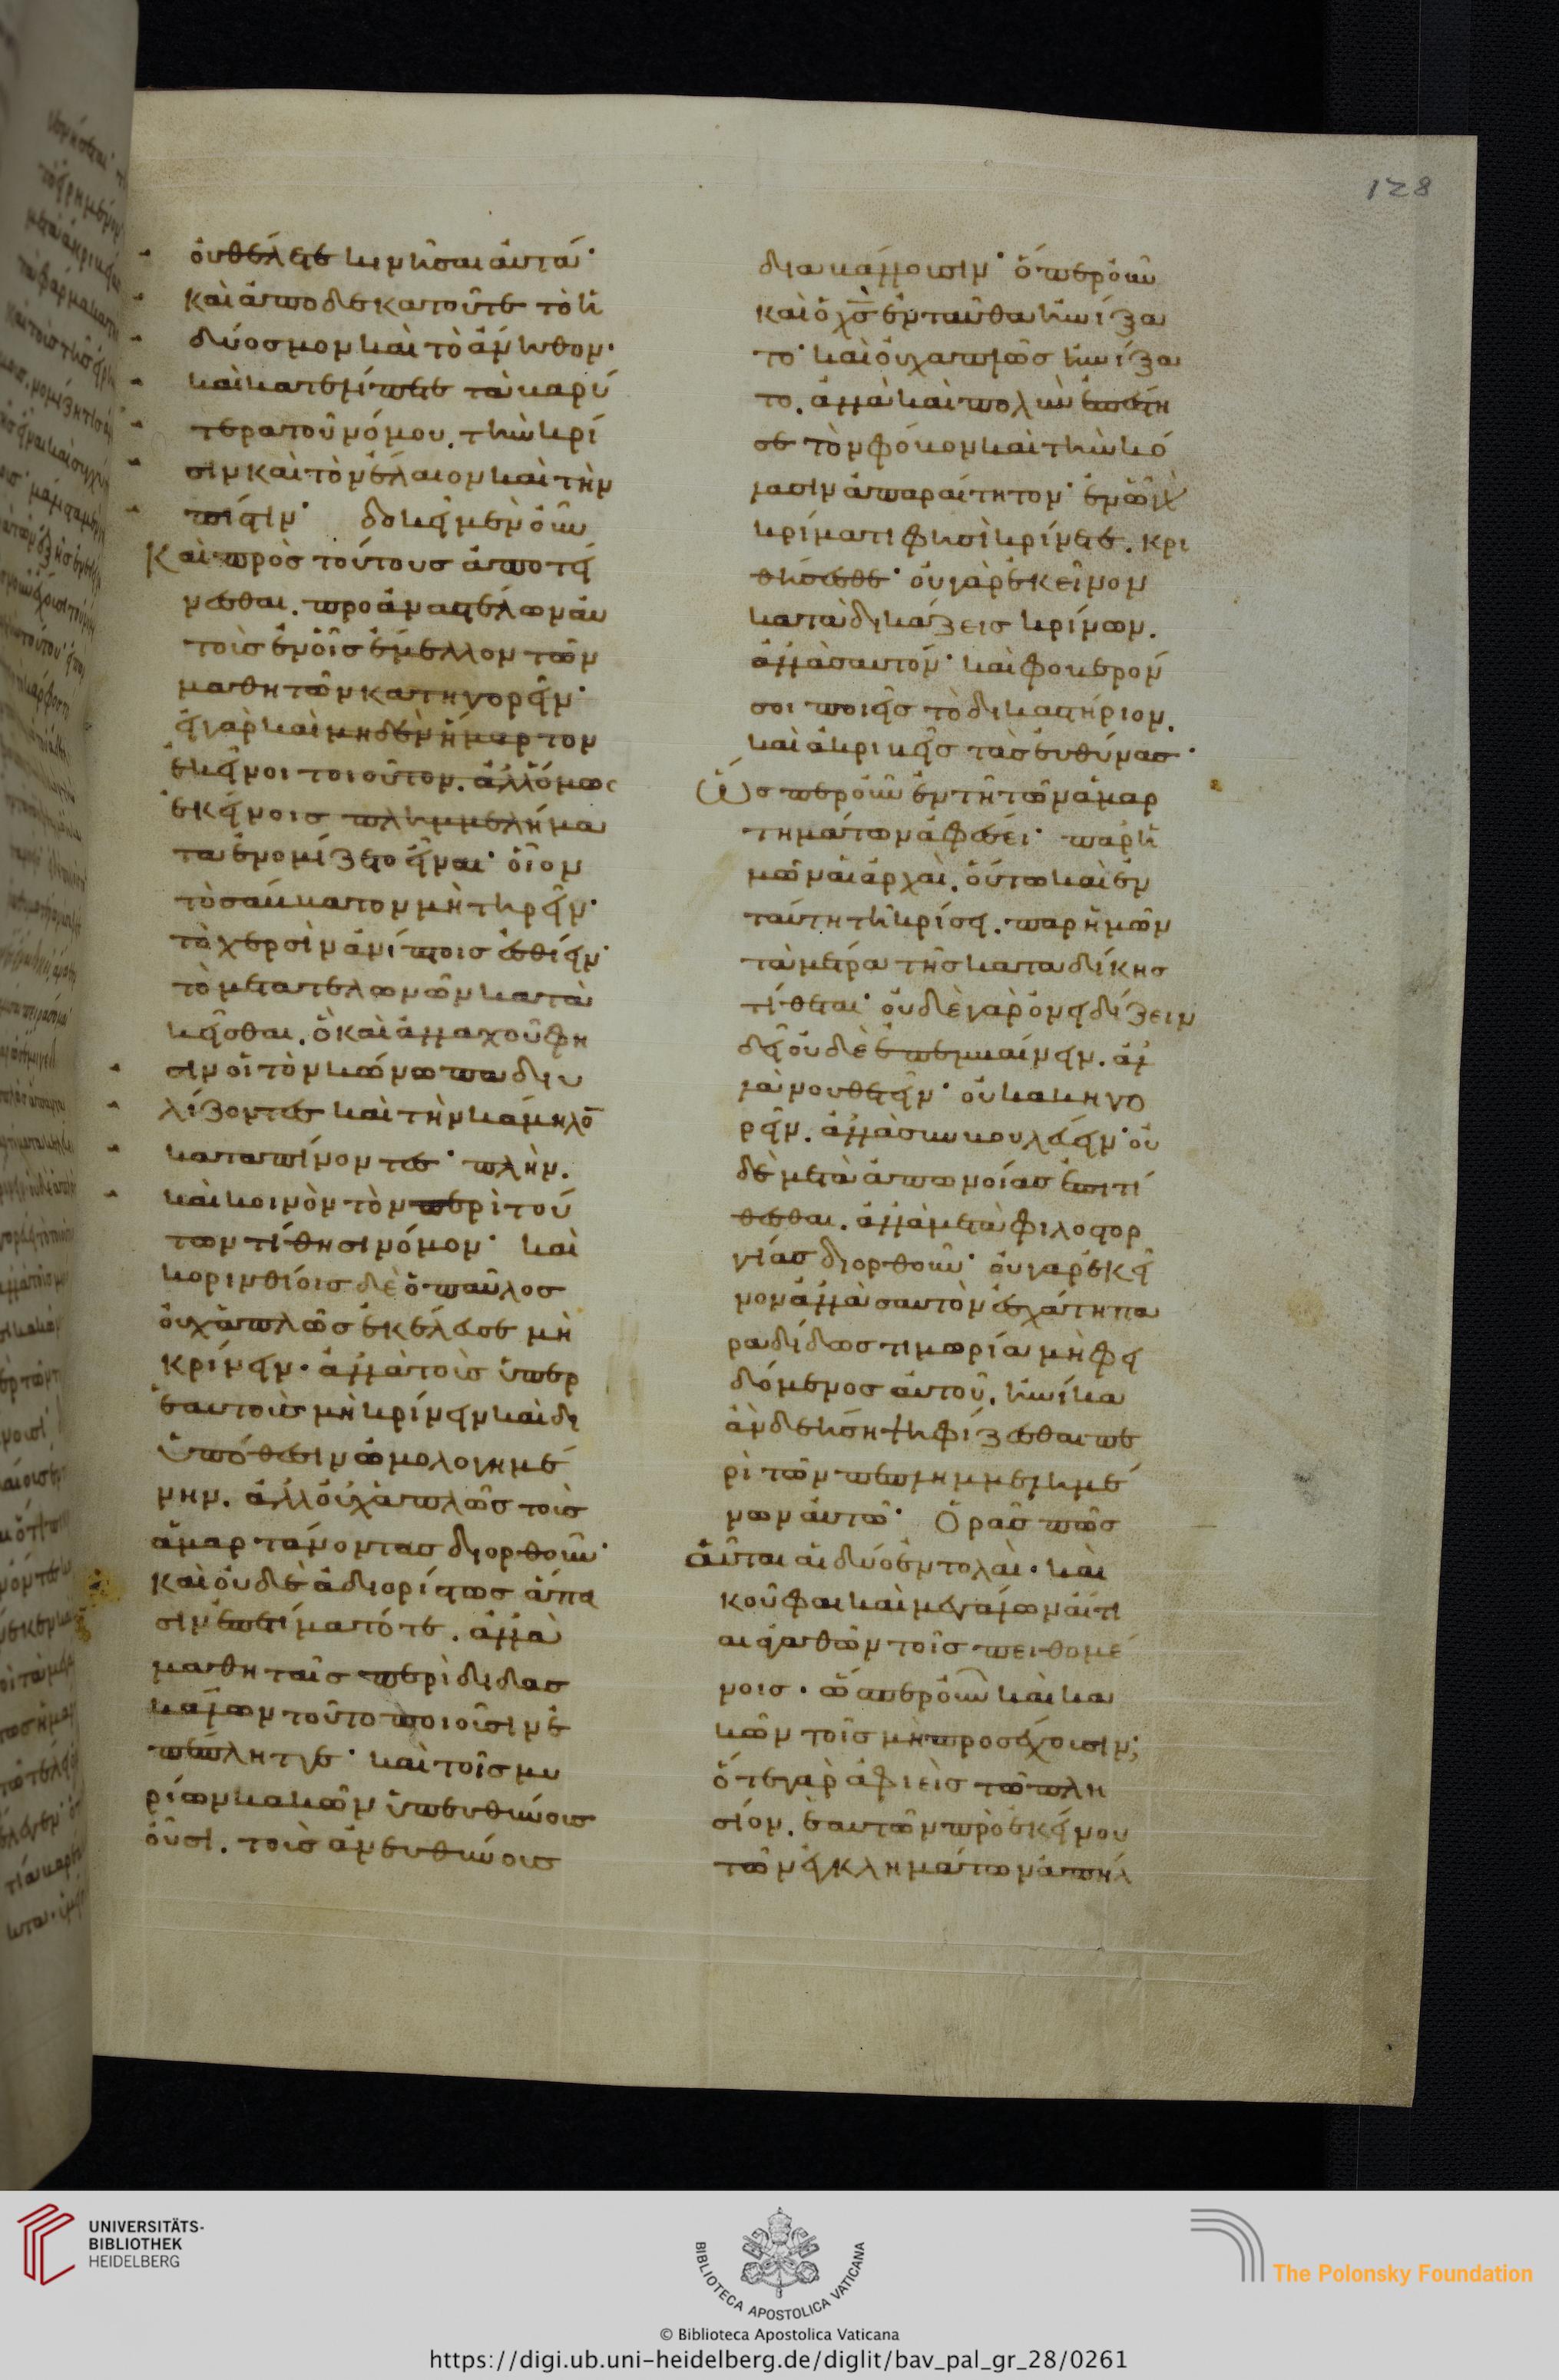 οὐ θέλετε κινῆσαι αὐτά·
καὶ ἀποδεκατοῦτε τὸ ἡ
δύοσμον καὶ τὸ ἄνηθον·
καὶ κατελίπετε τὰ βαρύ
τερα τοῦ νόμου. τὴν κρί
σιν καὶ τὸν ἔλαιον καὶ τὴν
πίστιν· δοκεῖ μὲν οὖν
Καὶ πρὸς τούτους ἀποτεί
νεσθαι. προαναστέλλων αὐ
τοὺς ἐν οἷς ἔμελλον τῶν
μαθητῶν κατηγορεῖν·
εἰ γὰρ καὶ μηδὲν ἥμαρτον
ἐκεῖνοι τοιοῦτον. ἀλλ' ὅμως
ἐκείνοις πλημμελήμα
τα ἐνομίζετο εἶναι· οἷον
τὸ σάββατον μὴ τηρεῖν·
τὸ χερσὶν ἀνίπτοις ἐσθίειν·
τὸ μετὰ τελωνῶν κατα
κεῖσθαι. ὃ καὶ ἀλλαχοῦ φη
σιν οἱ τὸν κώνωπα διυ
λίζοντες καὶ τὴν κάμηλο̅
καταπίνοντες· πλὴν.
καὶ κοινὸν τὸν περὶ τού
των τίθησι νόμον· καὶ
κορινθίοις δὲ ὁ παῦλος
οὐχ ἁπλῶς ἐκέλευσε μὴ
κρίνειν· ἀλλὰ τοὺς ὑπὲρ
ἑαυτοὺς μὴ κρίνειν καὶ δι
ὑπόθεσιν ὡμολογημέ
νην. ἀλλ' οὐχ ἁπλῶς τοὺς
ἁμαρτάνοντας διορθοῦν·
καὶ οὐδὲ ἀδιορίστως ἅπα
σιν ἐπετίμα τότε. ἀλλὰ
μαθηταῖς περὶ διδασ
κάλων τοῦτο ποιοῦσιν ἐ
πέπληττε· καὶ τοῖς μυ
ρίων κακῶν ὑπευθύνοις
οὖσι. τοὺς ἀνευθύνους
128
διαβάλλουσιν· ὅπερ οὖν
καὶ ὁ χ̅ς̅ ἐνταῦθα ἠνίξα
το· καὶ οὐχ ἁπλῶς ἠνίξα
το. ἀλλὰ καὶ πολὺν ἐπέστη
σε τὸν φόβον καὶ τὴν κό
λασιν ἀπαραίτητον· ἐν ᾧ γὰρ
κρίματι φησὶ κρίνετε. κρι
θήσεσθε· οὐ γὰρ ἐκεῖνον
καταδικάζεις κρίνων.
ἀλλὰ σαυτόν· καὶ φοβερόν
σοι ποιεῖς τὸ δικαστήριον.
καὶ ἀκριβεῖς τὰς εὐθύνας·
Ὥσπερ οὖν ἐν τῇ τῶν ἁμαρ
τημάτων ἀφέσει· παρ' ἡ
μῶν αἱ ἀρχαὶ. οὕτω καὶ ἐν
ταύτῃ τῇ κρίσει. παρ' ἡμῶν
τὰ μέτρα τῆς καταδίκης
τίθεται· οὐδὲ γὰρ ὀνειδίζειν
δεῖ οὐδὲ ἐπεμβαίνειν. ἀλ
λὰ νουθετεῖν· οὐ κακηγο
ρεῖν. ἀλλὰ συμβουλεύειν· οὐ
δὲ μετὰ ἀπονοίας ἐπιτί
θεσθαι. ἀλλὰ μετὰ φιλοστορ
γίας διορθοῦν· οὐ γὰρ ἐκεῖ
νον ἀλλὰ σαυτὸν ἐσχάτῃ πα
ραδίδως τιμωρία μὴ φει
δόμενος αὐτοῦ. ἡνίκα
ἂν δεήσῃ ψηφίζεσθαι πε
ρὶ τῶν πεπλημμελημέ
νων αὐτῷ· Ὁρᾶς πῶς
αὗται αἱ δύο ἐντολαὶ· καὶ
κοῦφαι καὶ μεγάλων αἴτι
αι ἀγαθῶν τοῖς πειθομέ
νοις· ὥσπερ οὖν καὶ κα
κῶν τοῖς μὴ προσέχουσιν;
ὅ τε γὰρ ἀφιεὶς τῷ πλη
σίον. ἑαυτὸν πρὸ ἐκείνου
τῶν ἐγκλημάτων ἀπήλ
UNIVERSITÄTS-
BIBLIOTHEK
HEIDELBERG
BIBLIOTECA APOSTOLICA VATICANA
The Polonsky Foundation
© Biblioteca Apostolica Vaticana
https://digi.ub.uni-heidelberg.de/diglit/bav_pal_gr_28/0261